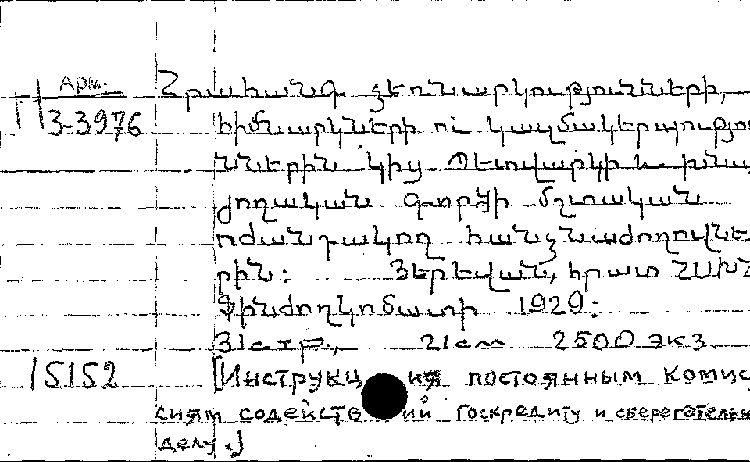 Арм. Հրահանգ ձեռնարկությունների,
П 3-3976 հիմնարկների ու կազմակերպությու
ններին կից Պետվարկի և խնա
յողական գործի մշտական
օժանդակող հանձնաժողովնե
րին: Յերեվան, հրատ ՀՍԽՀ
Ֆինժողկոմատի 1929:
31 стр., 21 см 2500 экз.
15152 [Инструкция постоянным комис
сиям содействий Госкредиту и сберегательн
делу.]